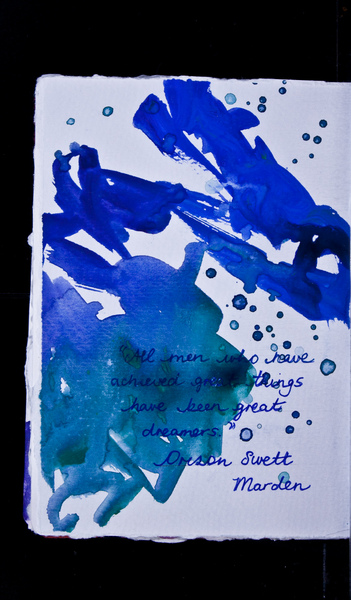 "All men who have
achieved great things
have been great
dreamers."
Orison Swett
Marden